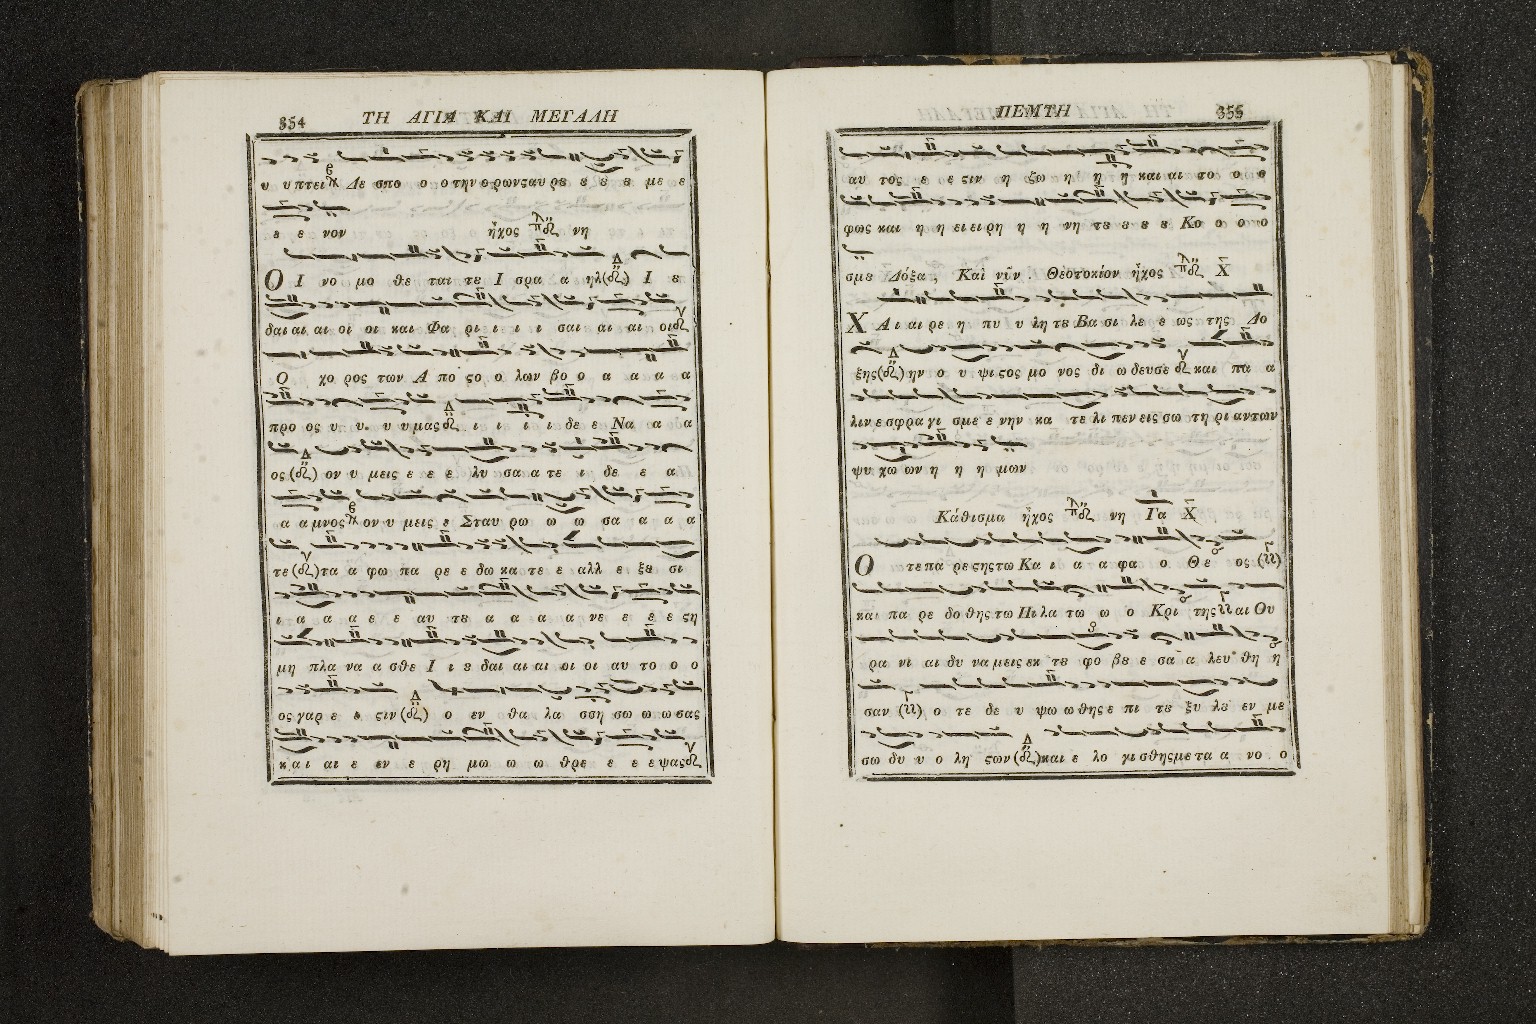 354
ΤΗ ΑΓΙΑ ΚΑΙ ΜΕΓΑΛΗ
υ υ πτει Δε σπο ο ο την ο ρων ςαυ ρȣ ȣ ȣ ȣ με ε
ε ε νον ἦχος νη
Ο Ι νο μο θε ται τȣ Ι σρα α ηλ Ι ȣ
δαι αι αι οι οι και Φα ρι ι ι ι σαι αι αι οι
Ο χο ρος των Α πο ςο ο λων βο ο α α α α
προ ος υ υ υ υ μας ι ι ι ι δε ε Να α α
ος ον υ μεις ε ε ε λυ σα α τε ι δε ε α
α α μνος ον υ μεις ε Σταυ ρω ω ω σα α α α
τε τα α φω πα ρε ε δω κα τε ε αλλ ε ξȣ σι
ι α α α ε ε αυ τȣ α α α α νε ε ε ε ςη
μη πλα να α σθε Ι ι ȣ δαι αι αι οι οι αυ το ο ο
ος γαρ ε ε ςιν ο εν θα λα σση σω ω ω σας
και αι ε εν ε ρη μω ω ω θρε ε ε ε ψας
ΠΕΜΤΗ
355
αυ τος ε ε ςιν η ζω η η η και αι το ο ο
φως και η η ει ει ρη η η νη τȣ ȣ ȣ ȣ Κο ο ο ο
σμȣ Δόξα, Καὶ νῦν. Θεοτοκίον ἦχος
Χ Αι αι ρε η πυ υ λη τȣ Βα σι λε ε ως της Δο
ξης ην ο υ ψι ςος μο νος δι ω δευσε και πα α
λιν ε σφρα γι σμε ε νην κα τε λι πεν εις σω τη ρι αν των
ψυ χω ων η η η μων
Κάθισμα ἦχος νη Γα
Ο τε πα ρε ςης τω Κα ι α α φα ο Θε ος
και πα ρε δο θης τω Πι λα τω ω ο Κρι της αι Ου
ρα νι αι δυ να μεις εκ τȣ φο βȣ ε σα α λευ θη η
σαν ο τε δε υ ψω ω θης ε πι τȣ ξυ λȣ εν με
σω δυ υ ο λη ςων και ε λο γι σθης με τα α νο ο